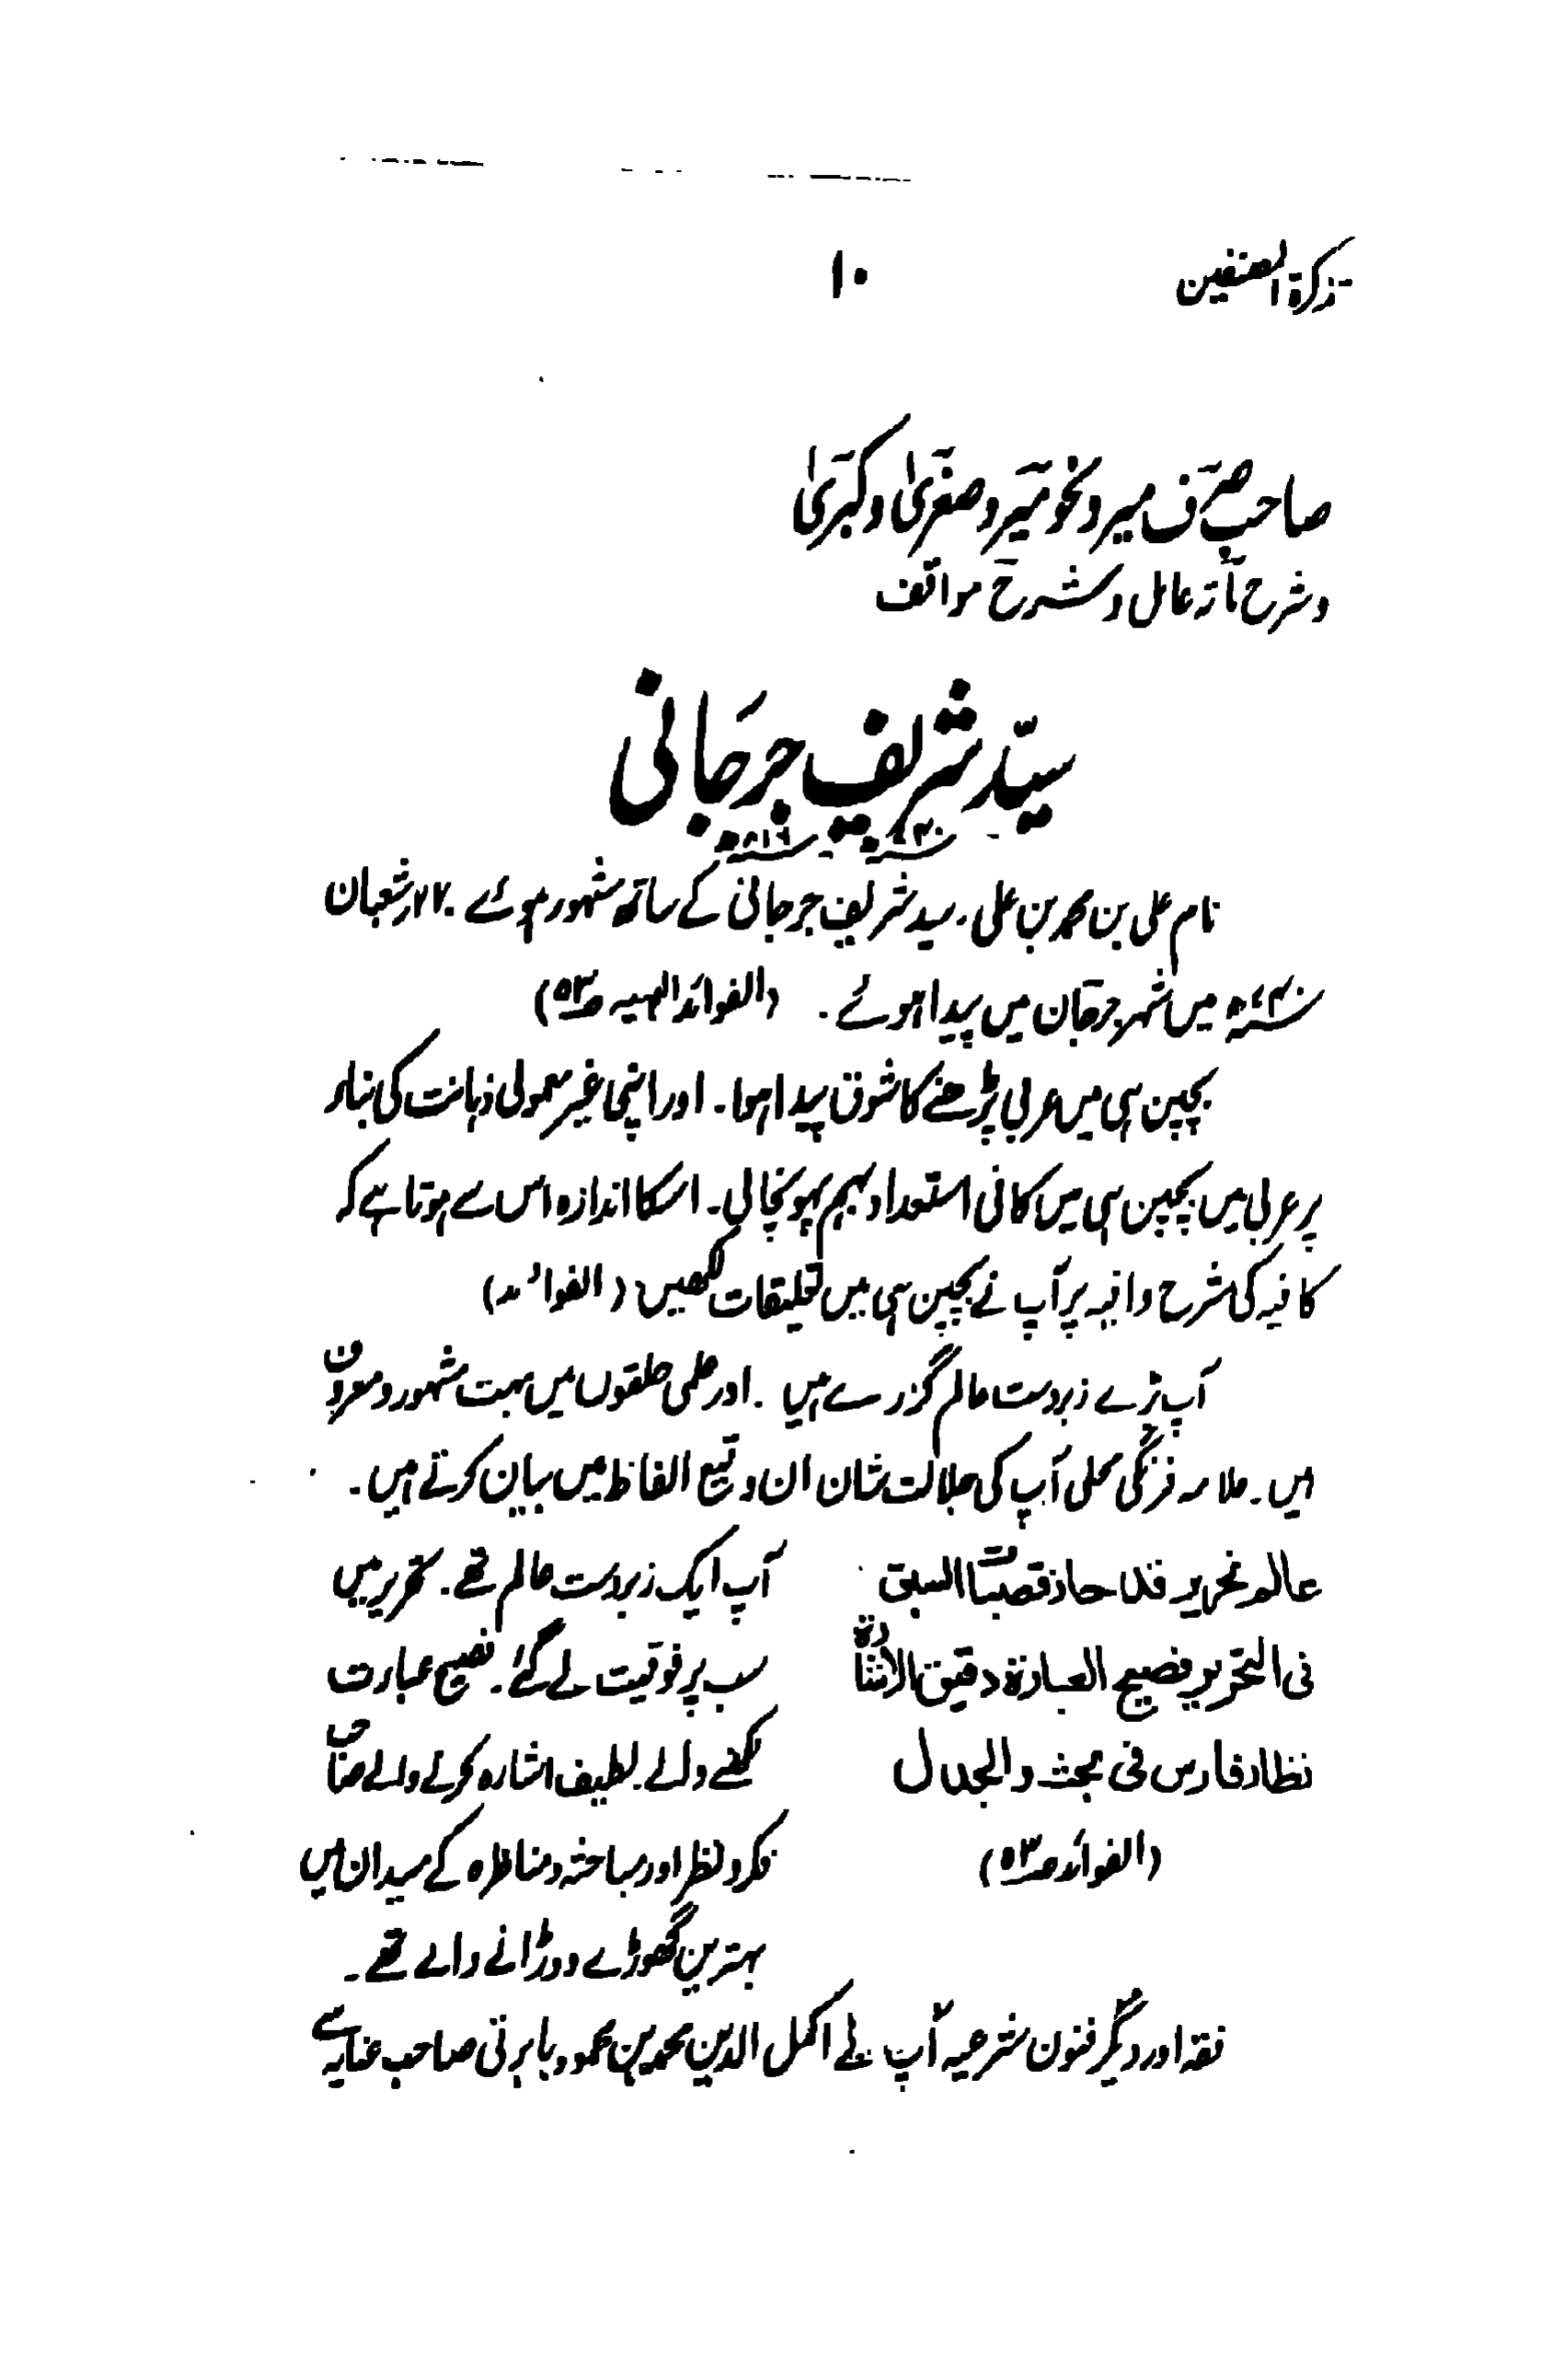 تذکرۃ المصنفین
۱۰
صاحب صرف میر و نحو میر و صغریٰ و کبریٰ
و شرح مأتہ عامل و شرح مواقف
سیّد شریف جرجانی
۷۴۰ھ - ۸۱۶ھ
نام علی بن محمد بن علی، سید شریف جرجانی کے ساتھ مشہور ہوئے۔ ۲۲ر شعبان
۷۴۰ھ میں شہر جرجان میں پیدا ہوئے۔ (الفوائد البہیہ ص۵۳)
بچپن ہی میں عربی پڑھنے کا شوق پیدا ہوا۔ اور اپنی غیر معمولی ذہانت کی بناء
پر عربی میں بچپن ہی میں کافی استعداد بہم پہونچالی۔ اسکا اندازہ اس سے ہوتا ہے کہ
کافیہ کی شرح وافیہ پر آپ نے بچپن ہی میں تعلیقات لکھیں (الفوائد)
آپ بڑے زبردست عالم گزرے ہیں۔ اور علمی حلقوں میں بہت مشہور و معروف
ہیں۔ علامہ فرنگی محلی آپ کی جلالت شان ان وقیع الفاظ میں بیان کرتے ہیں۔
عالم نحریر قد حاز قصبات السبق
فی التحریر فصیح العبارۃ دقیق الاشارۃ
نظار فارس فی بحث والجدال
(الفوائد ص۵۳)
آپ ایک زبردست عالم تھے۔ تحریر میں
سب پر فوقیت لے گئے۔ فصیح عبارت
لکھنے والے لطیف اشارہ کرنے والے صاحب
فکر و نظر اور مباحثہ و مناظرہ کے میدان میں
بہترین گھوڑے دوڑانے والے تھے۔
فقہ اور دیگر فنون شرعیہ آپ نے اکمل الدین محمد بن محمود بابرتی صاحب عنایہ سے